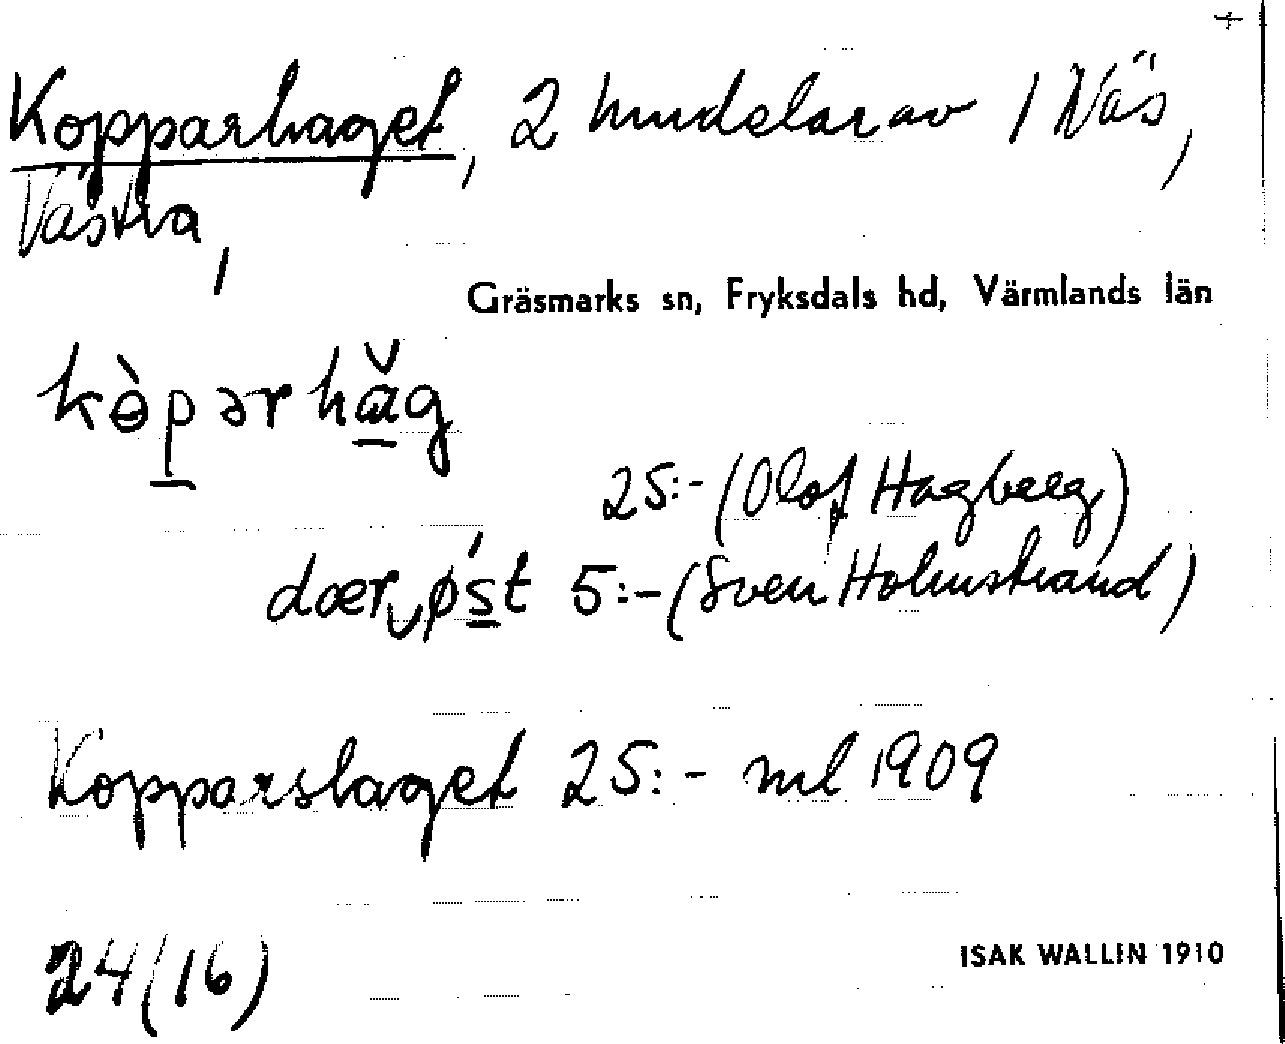 Kopparhaget, 2 hmdelar av 1 Näs,
Västra,
Gräsmarks sn, Fryksdals hd, Värmlands län
kɵ̀pərhăg
25:- (Olof Hagberg)
dær‿øśt 5:- (Sven Holmstrand)
Kopparslaget 25:- ml 1909
24(16)
ISAK WALLIN 1910